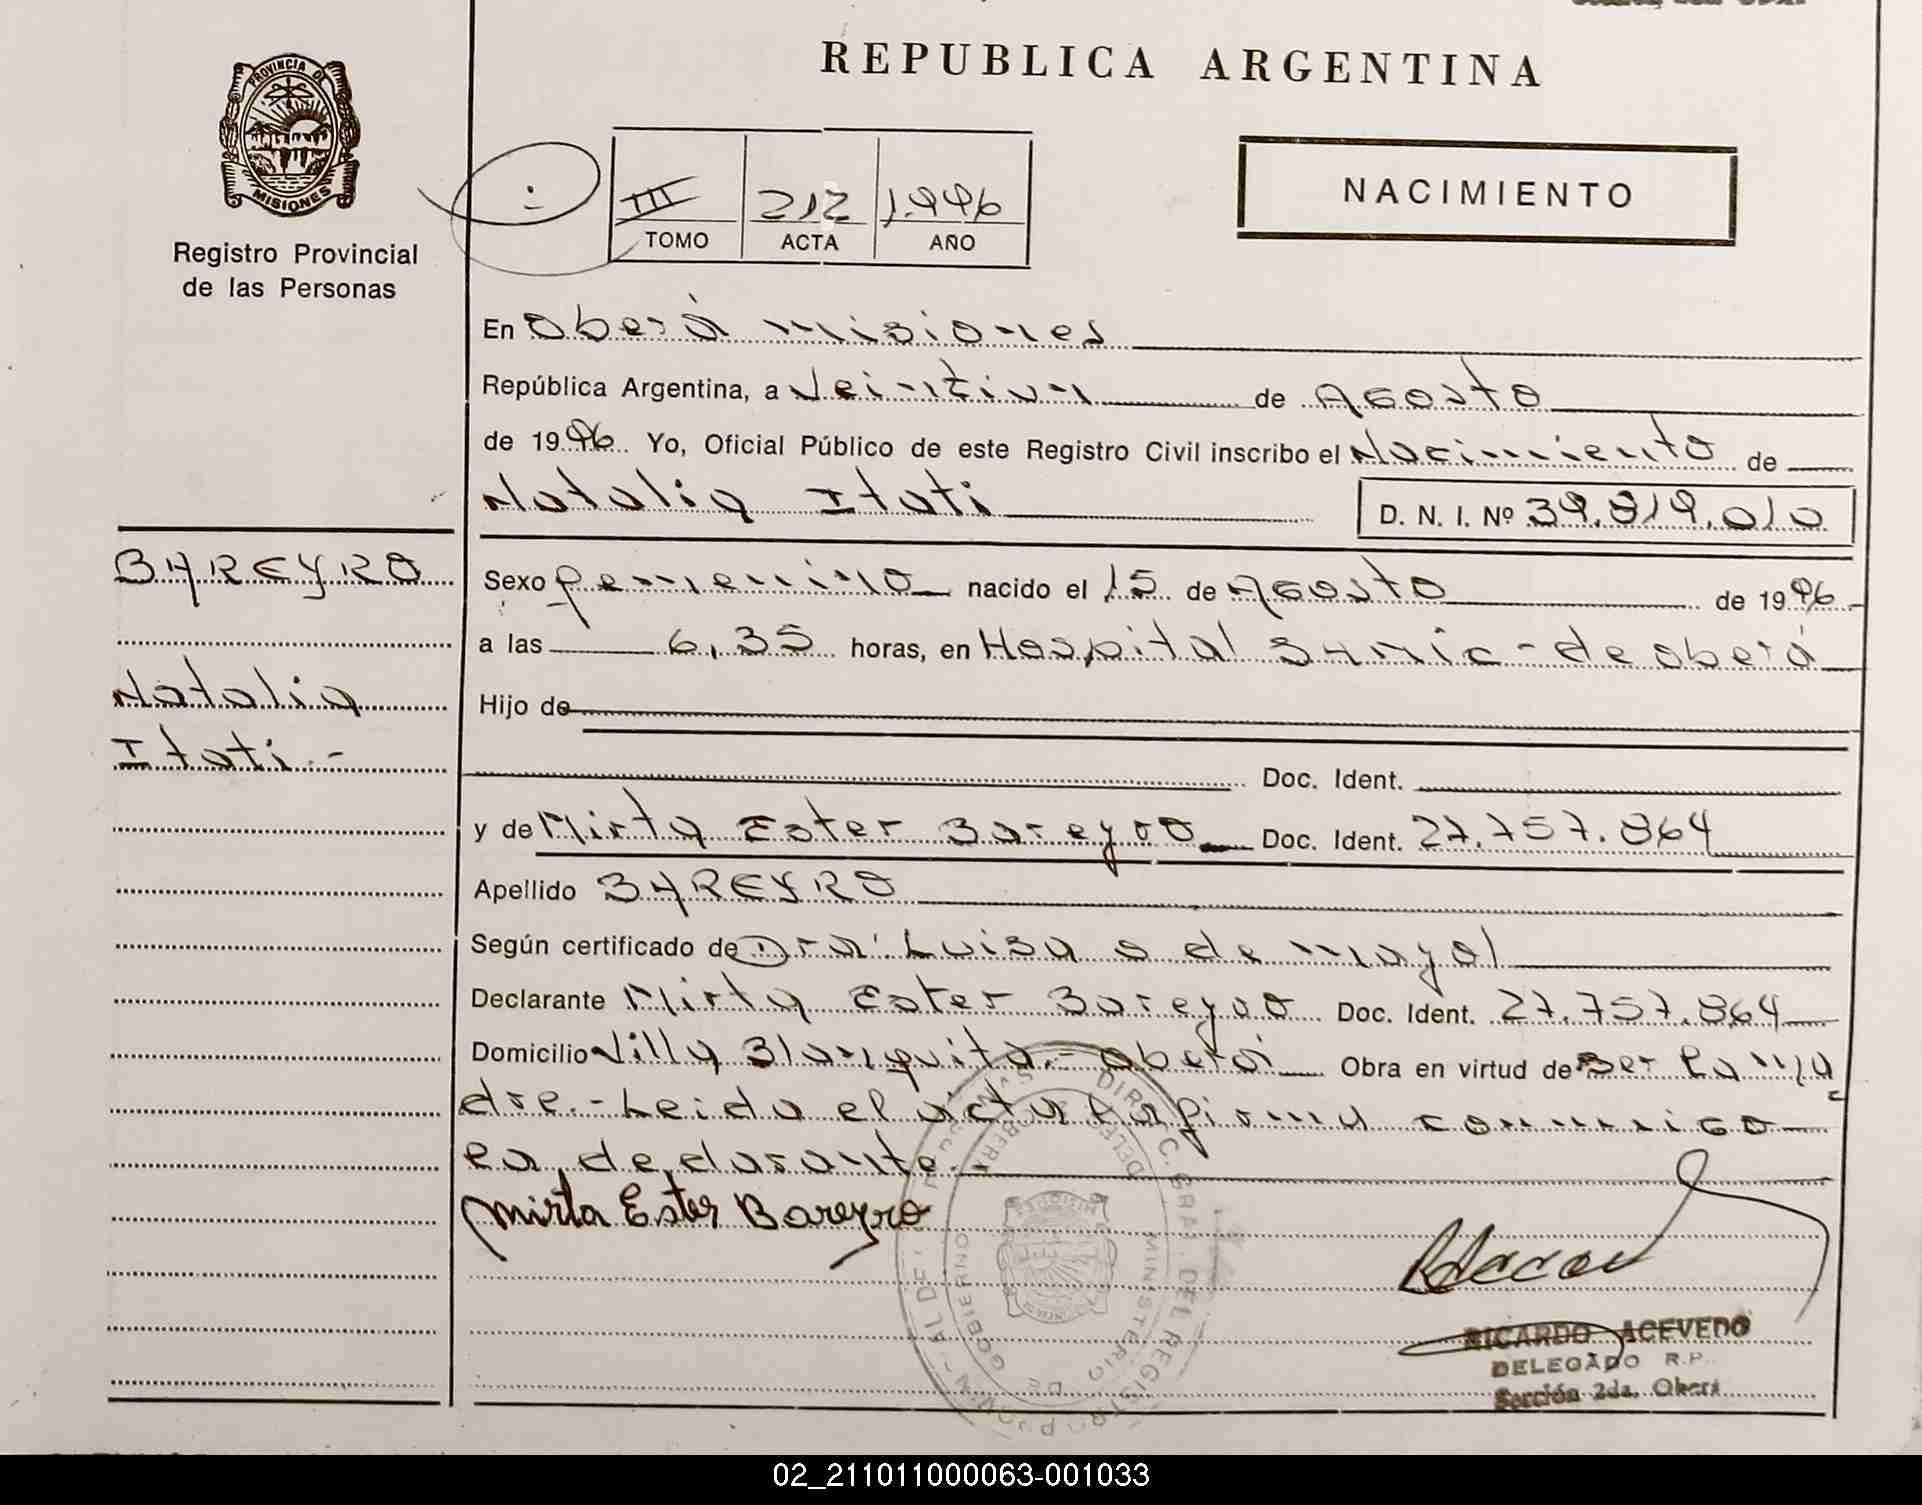 REPUBLICA ARGENTINA
PROVINCIA DE
MISIONES
Registro Provincial
de las Personas
III 212 1.996
TOMO ACTA AÑO
NACIMIENTO
En Oberá misiones
República Argentina, a Veintiun de Agosto
de 1996 Yo, Oficial Público de este Registro Civil inscribo el Nacimiento de
Natalia Itati D. N. I. Nº 39.819.010
BAREYRO
Sexo femenino nacido el 15 de Agosto de 1996
a las 6,35 horas, en Hospital SAMic - de oberá
Natalia
Hijo de
Itati.-
Doc. Ident.
y de Mirta Ester Bareyro Doc. Ident. 27.757.864
Apellido BAREYRO
Según certificado de Dra. Luisa de mayol
Declarante Mirta Ester Bareyro Doc. Ident. 27.757.864
Domicilio Villa Blanquita.- oberá Obra en virtud de ser la ma
dre.- Leida el acta la firma conmigo
la declarante.-
Mirta Ester Bareyro
DIRC. GRAL. DEL REGISTRO
MINISTERIO DE GOBIERNO
RICARDO ACEVEDO
DELEGADO R.P.
Sección 2da. Oberá
02_211011000063-001033